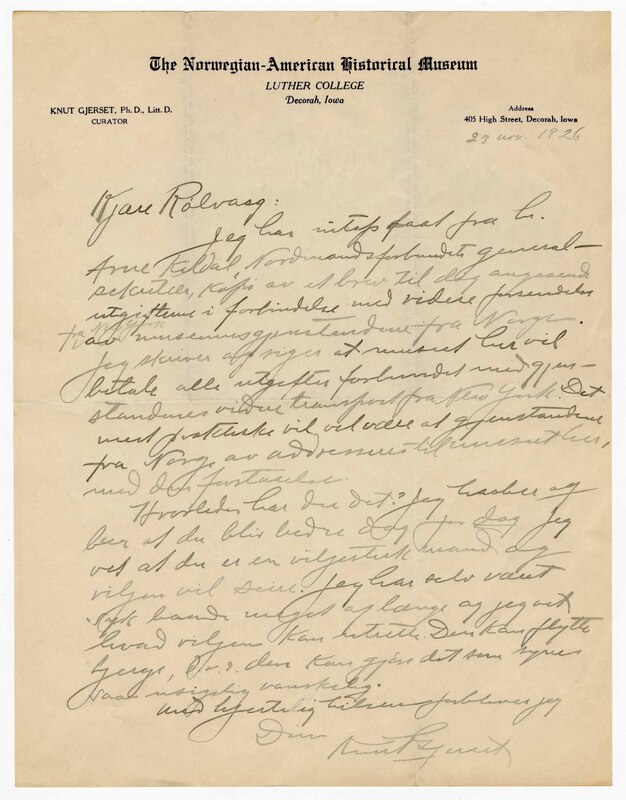 The Norwegian-American Historical Museum
LUTHER COLLEGE
Decorah, Iowa
KNUT GJERSET, Ph.D., Litt.D.
CURATOR
Address
405 High Street, Decorah, Iowa
23 nov. 1926
Kjære Rölvaag:
Jeg har netop faat fra hr.
Arne Kildal, Nordmandsforbundets general-
sekretær, kopi av et brev til dig angaaende
utgiftene i forbindelse med videre forsendelse
fra New York
av museumsgjenstandene fra Norge.
Jeg skriver og siger at museet her vil
betale alle utgifter forbundet med gjen-
standenes videre transport fra New York. Det
mest praktiske vil vel være at gjenstandene
fra Norge av addresseres til museet her,
med den forstaaelse.
Hvorledes har du det? Jeg haaber og
beer at du blir bedre dag for dag. Jeg
vet at du er en viljesterk mand og
viljen vil seire. Jeg har selv været
syk baade meget og længe og jeg vet
hvad viljen kan utrette. Den kan flytte
bjerge, d.v.s. den kan gjøre det som synes
saa usigelig vanskelig.
Med hjertelig hilsen forbliver jeg
Din
Knut Gjerset